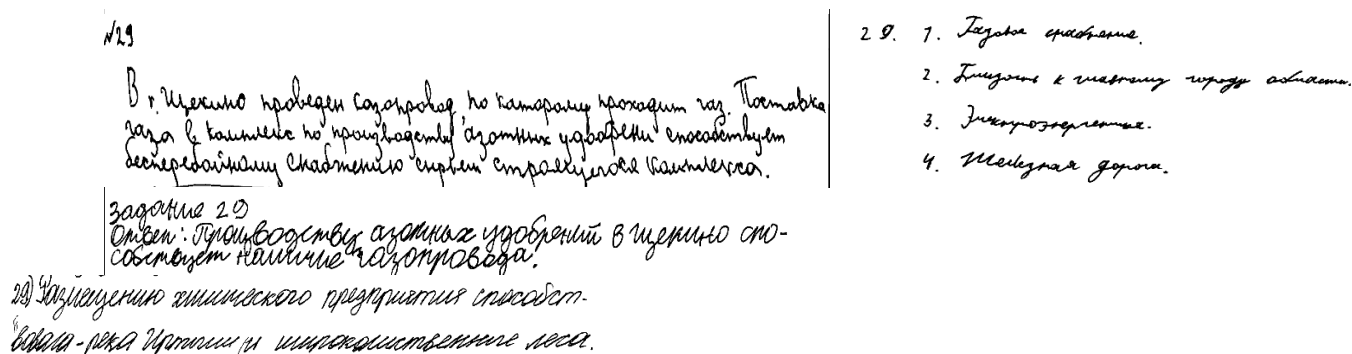 №29
В г. Щекино проведен газопровод по которому проходит газ. Поставка
газа в комплекс по производству азотных удобрени способствует
бесперебойному снабжению сырьём строящегося комплекса.
29. 1. Газовое снабжение.
2. Близость к главному городу области.
3. Электроэнергетика.
4. Железная дорога.
Задание 29
Ответ: Производству азотных удобрений в щекино спо-
собствует наличие газопровода.
29) Размещению химического предприятия способст-
вовала - река и широколиственные леса.